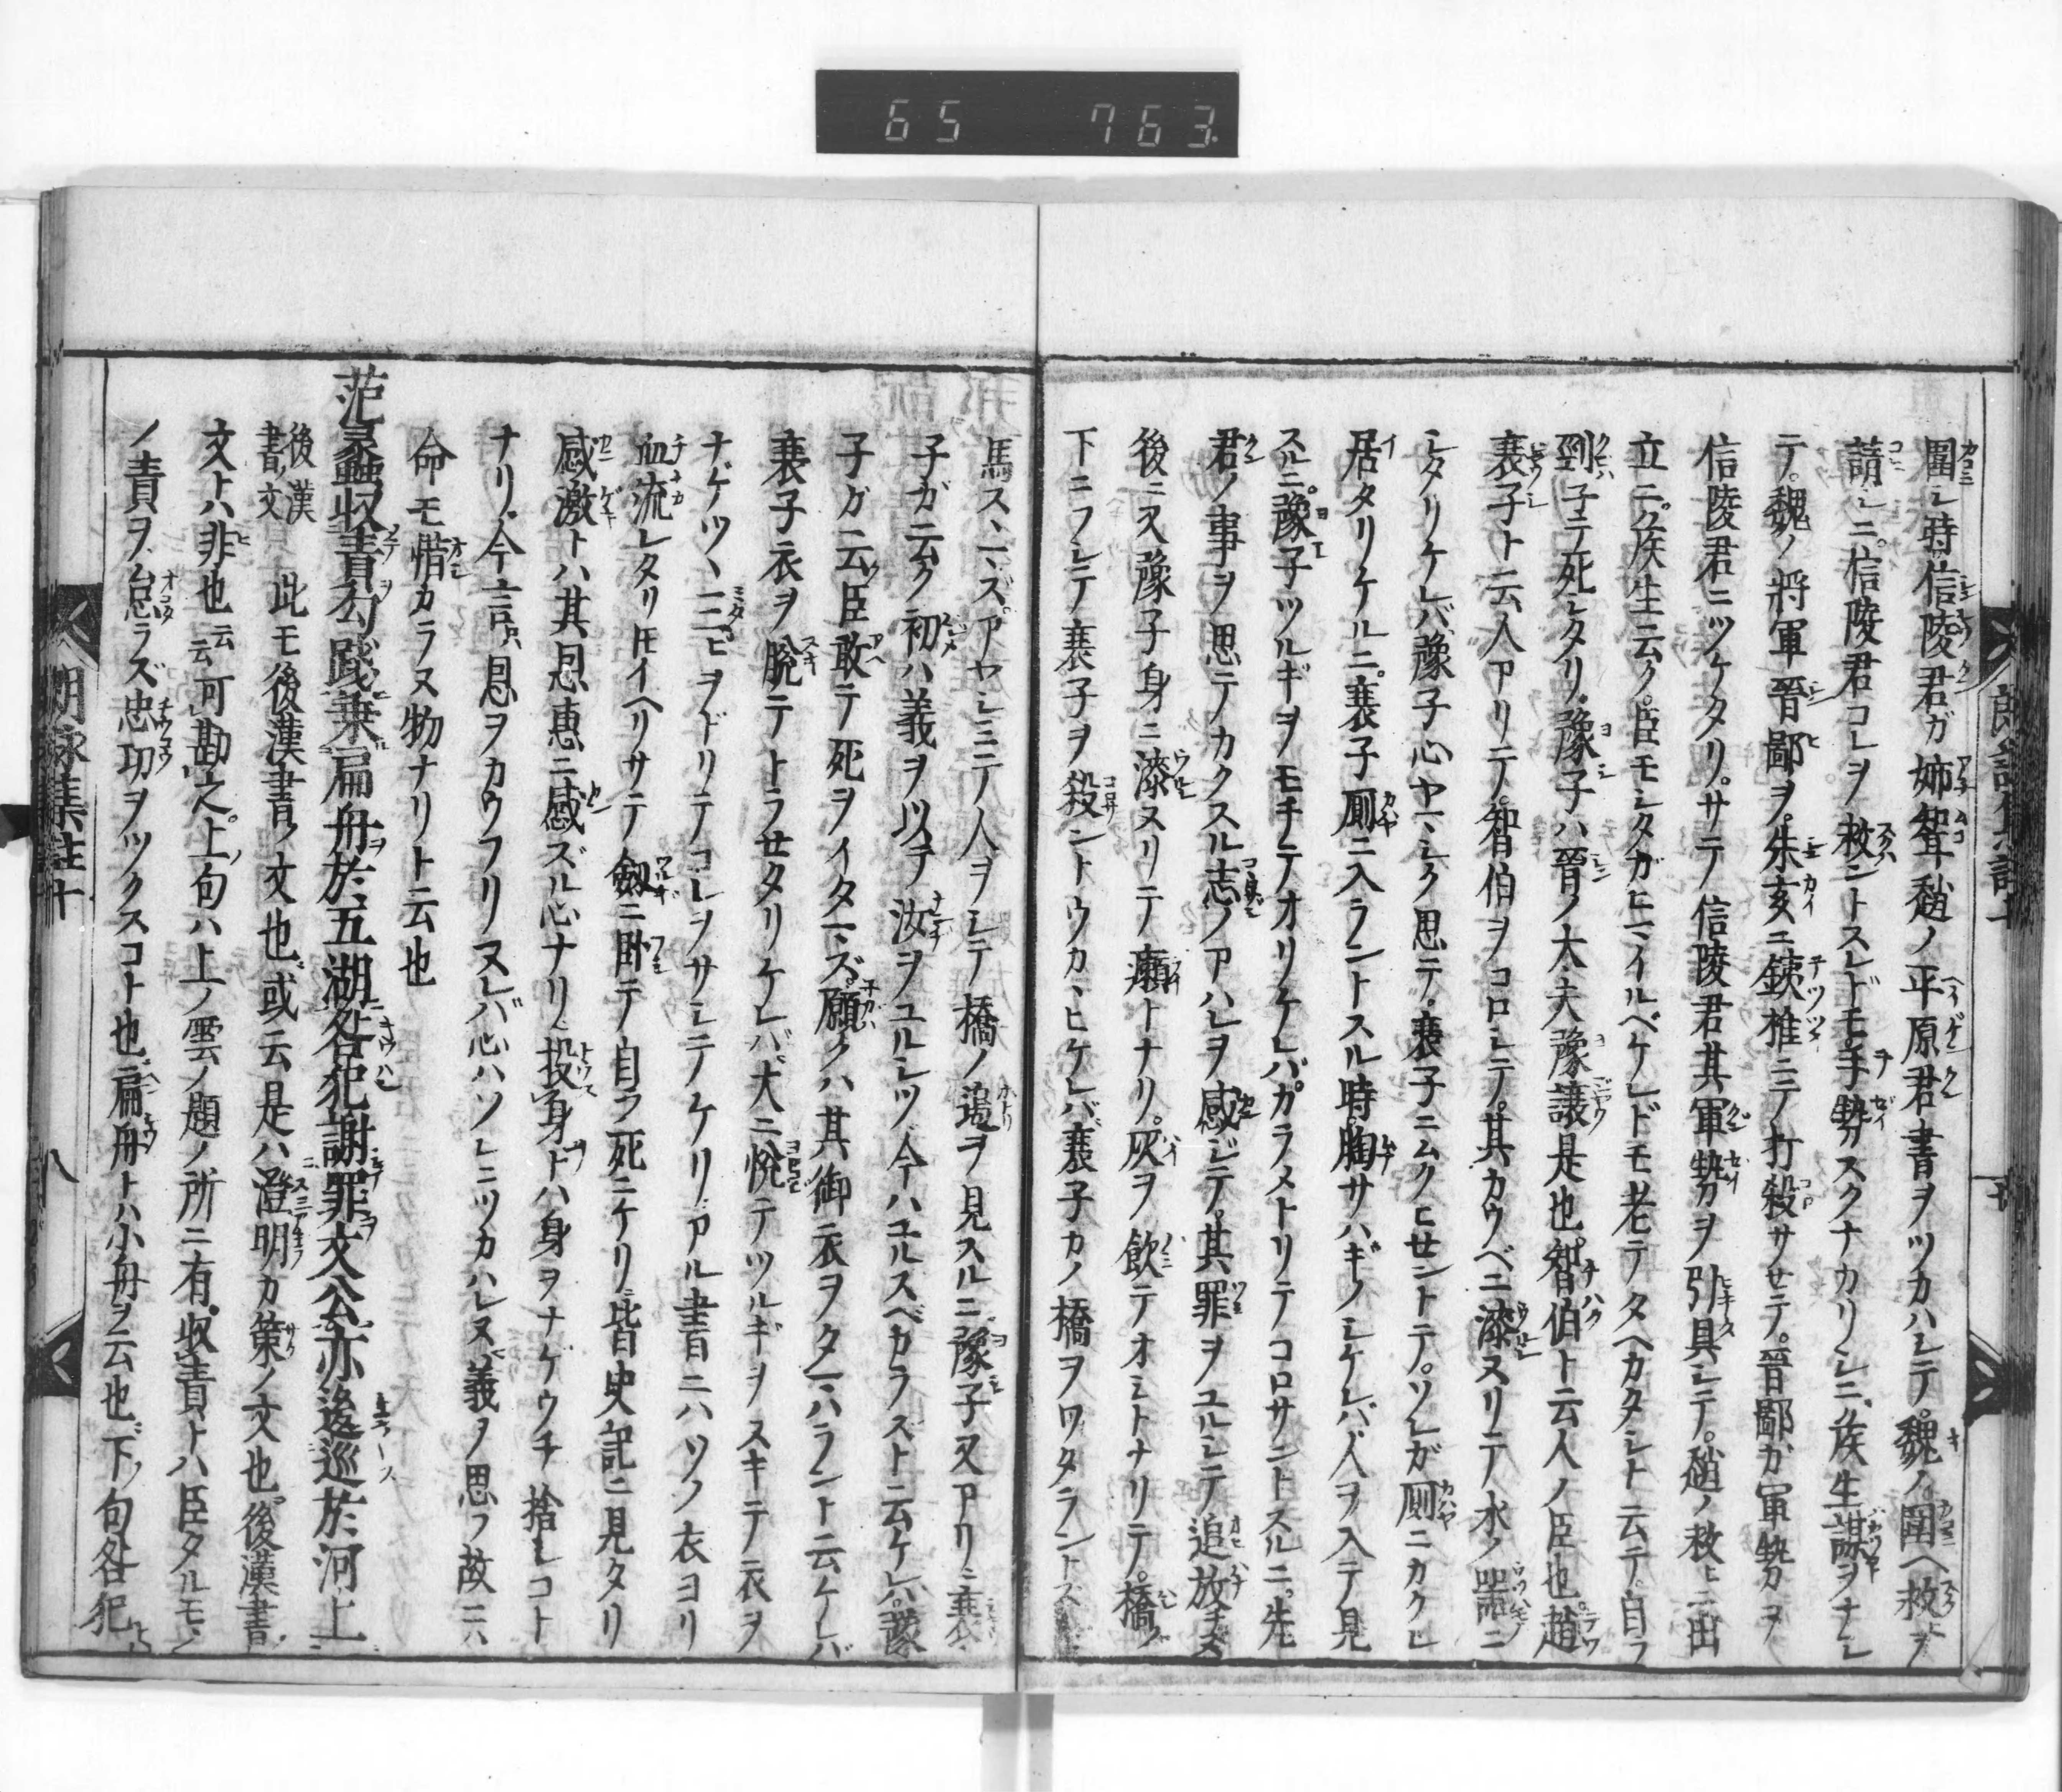 65 763
圍レ時信陵君ガ姉聟趙ノ平原君書ヲツカハシテ。魏ノ圍ヘ救ヲ
請シニ。信陵君コレヲ救ントスレドモ。手勢スクナカリシニ。矦生謀ヲナシ
テ。魏ノ將軍晉鄙ヲ。朱亥ニ鉄椎ニテ打殺サセテ。晉鄙ガ軍勢ヲ
信陵君ニツケタリ。サテ信陵君其軍勢ヲ引具シテ。趙ノ救ニ出
立ニ。矦生云ク。臣モシタガヒマイルベケレドモ老テタヘカタシト云テ。自ラ
剄子テ死シタリ。豫子ハ晉ノ大夫豫讓是也。智伯ト云人ノ臣也。趙
襄子ト云人アリテ。智伯ヲコロシテ。其カウベニ漆ヌリテ水ノ器ニ
シタリケレバ。豫子心ヤマシク思テ。襄子ニムクヒセントテ。ソレガ厠ニカクレ
居タリケルニ。襄子厠ニ入ラントスル時。胸サハギノシケレバ人ヲ入テ見
スルニ。豫子ツルギヲモチテオリケレバ。カラメトリテコロサントスルニ。先
君ノ事ヲ思テカクスル志ノアハレヲ感ジテ。其罪ヲユルシテ追放ス
後ニ又豫子身ニ漆ヌリテ癩トナリ。灰ヲ飲テオシトナリテ。橋ノ
下ニフレテ襄子ヲ殺ントウカヾヒケレバ。襄子カノ橋ヲワタラントス
馬スヽマズ。アヤシミテ人ヲシテ橋ノ邊ヲ見スルニ豫子又アリ。襄
子ガ云ク初ハ義ヲ以テ汝ヲユルシツ今ハユルスベカラズト云ケレバ。豫
子グ云臣敢テ死ヲイタマズ。願クハ其御衣ヲタマハラント云ケレバ
襄子衣ヲ脱テトラセタリケレバ。大ニ悦テツルギヲスキテ衣ヲ
ナゲツヽ三ヒヲドリテコレヲサシテノケリ。アル書ニハソノ衣ヨリ
血流レタリ𪜈イヘリサテ劔ニ卧テ自ラ死ニケリ。皆史記ニ見タリ
感激トハ其恩惠ニ感ズル心ナリ。投身トハ身ヲナゲウチ捨レコト
ナリ。今言ハ恩ヲカウフリヌレバ心ハソレニツカハレヌ。義ヲ思フ故ニハ
命モ惜カラヌ物ナリト云也
范蠡収責勾踐乗扁舟於五湖咎犯謝罪文公亦逡巡於河上
後漢書文　此モ後漢書ノ文也。或云是ハ澄明カ策ノ文也。後漢書ノ
文トハ非也云云可勘之。上ノ句ハ上ノ雲ノ題ノ所ニ有。収責トハ臣タルモノ
ノ責ヲ怠ラズ忠功ヲツクスコト也。扁舟トハ小舟ヲ云也。下ノ句咎犯
朗詠集註十
八